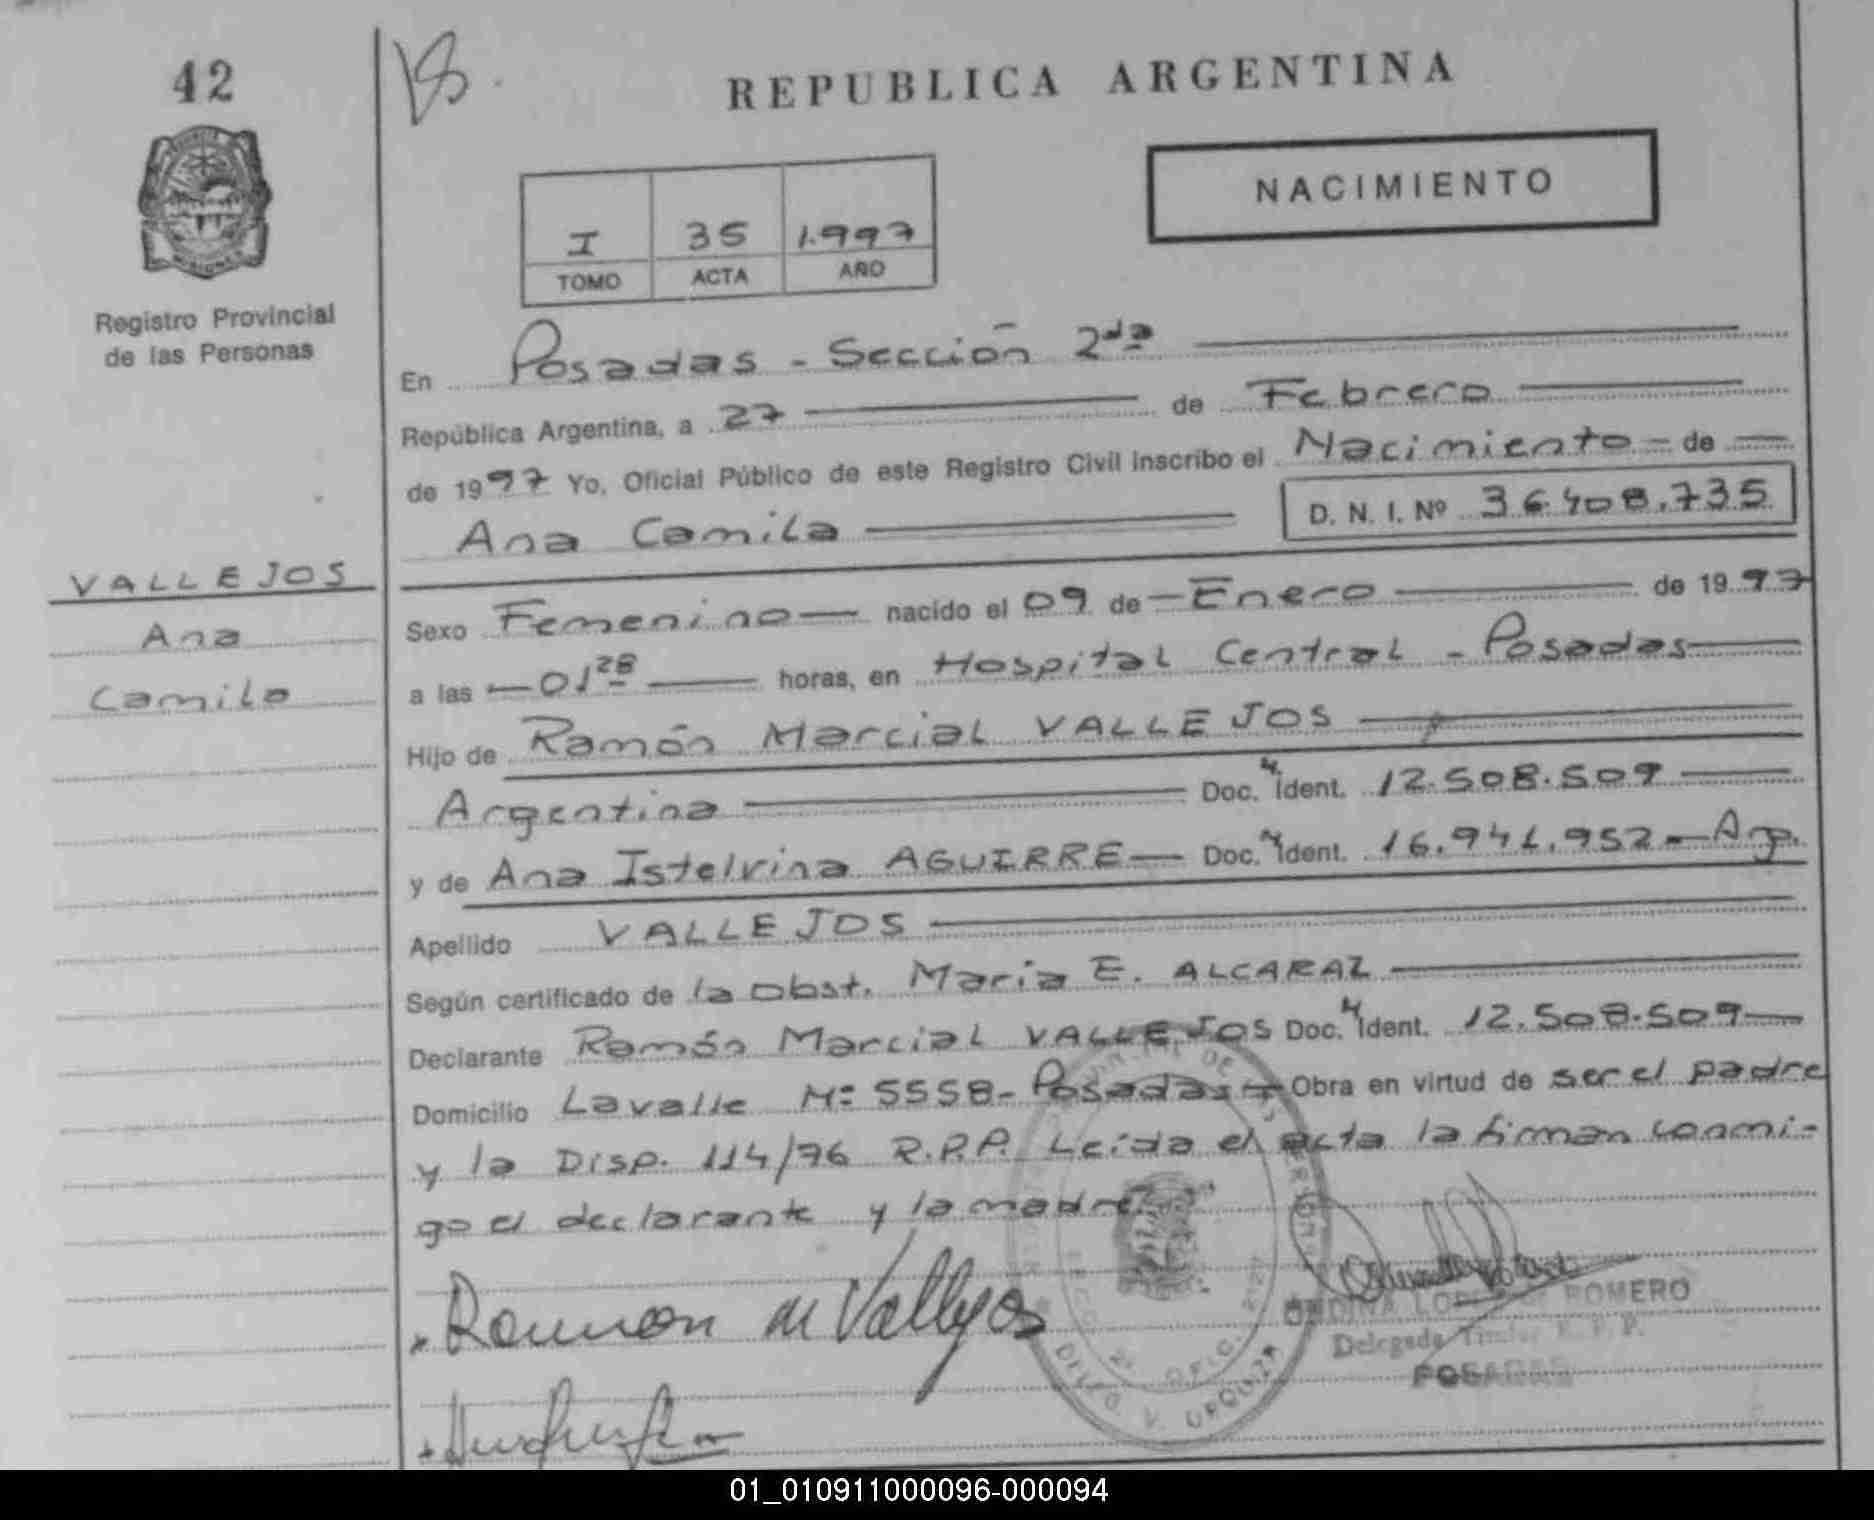 42
REPUBLICA ARGENTINA
NACIMIENTO
I 35 1.997
TOMO ACTA AÑO
MISIONES
Registro Provincial
de las Personas
En Posadas - Sección 2da
República Argentina, a 27 de Febrero
de 1997 Yo, Oficial Público de este Registro Civil inscribo el Nacimiento - de
Ana Camila
D. N. I. Nº 36.408.735
VALLEJOS
Ana
Camila
Sexo Femenino nacido el 09 de Enero de 1997
a las 01 28 horas, en Hospital Central - Posadas
Hijo de Ramón Marcial VALLEJOS
Argentina Doc. Ident. 12.508.509
y de Ana Istelvina AGUIRRE Doc. Ident. 16.941.952 - Arg.
Apellido VALLEJOS
Según certificado de la obst. Maria E. ALCARAZ
Declarante Ramón Marcial VALLEJOS Doc. Ident. 12.508.509
Domicilio Lavalle Nº 5558 - Posadas - Obra en virtud de ser el padre
y la Disp. 114/76 R.P.P. Leída el acta la firman conmi-
go el declarante y la madre
Ramon M Vallejos
ROMERO
POSADAS
OFIC.
DELEG. V. URQUIZA
01_010911000096-000094